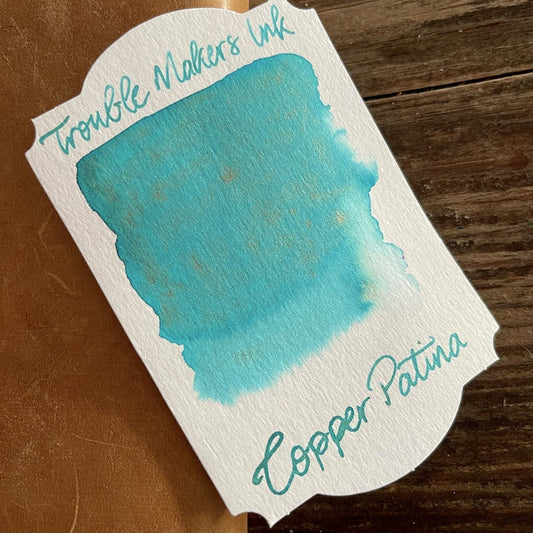 Trouble Makers Ink
Copper Patina